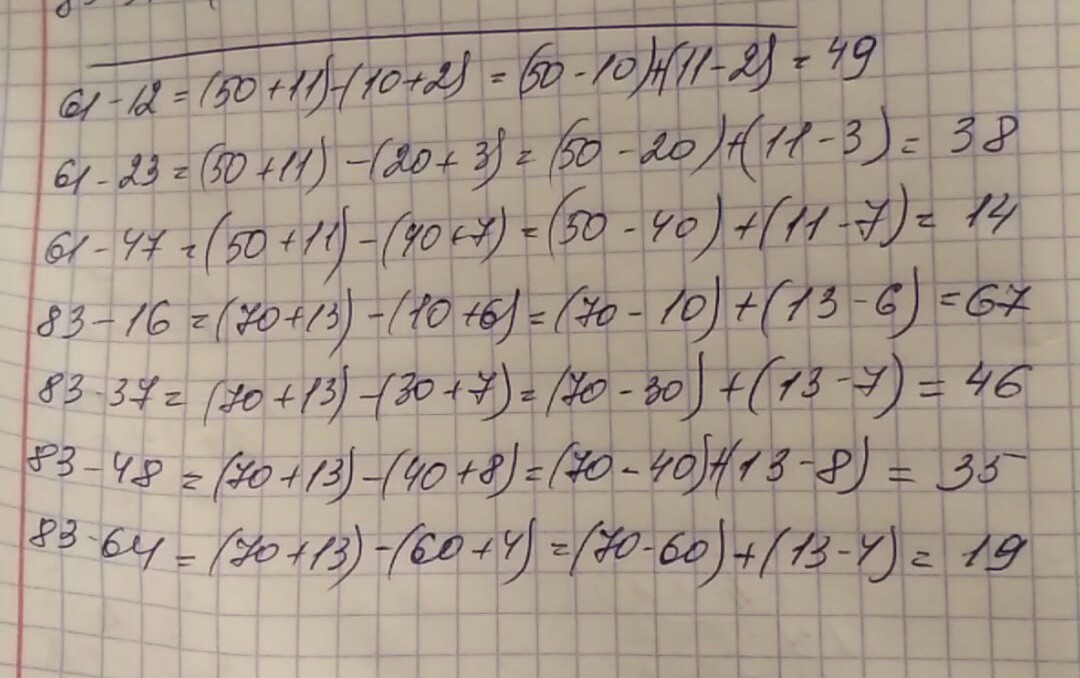 61 - 12 = (50 + 11) - (10 + 2) = (50 - 10) + (11 - 2) = 49
61 - 23 = (50 + 11) - (20 + 3) = (50 - 20) + (11 - 3) = 38
61 - 47 = (50 + 11) - (40 + 7) = (50 - 40) + (11 - 7) = 14
83 - 16 = (70 + 13) - (10 + 6) = (70 - 10) + (13 - 6) = 67
83 - 37 = (70 + 13) - (30 + 7) = (70 - 30) + (13 - 7) = 46
83 - 48 = (70 + 13) - (40 + 8) = (70 - 40) + (13 - 8) = 35
83 - 64 = (70 + 13) - (60 + 4) = (70 - 60) + (13 - 4) = 19